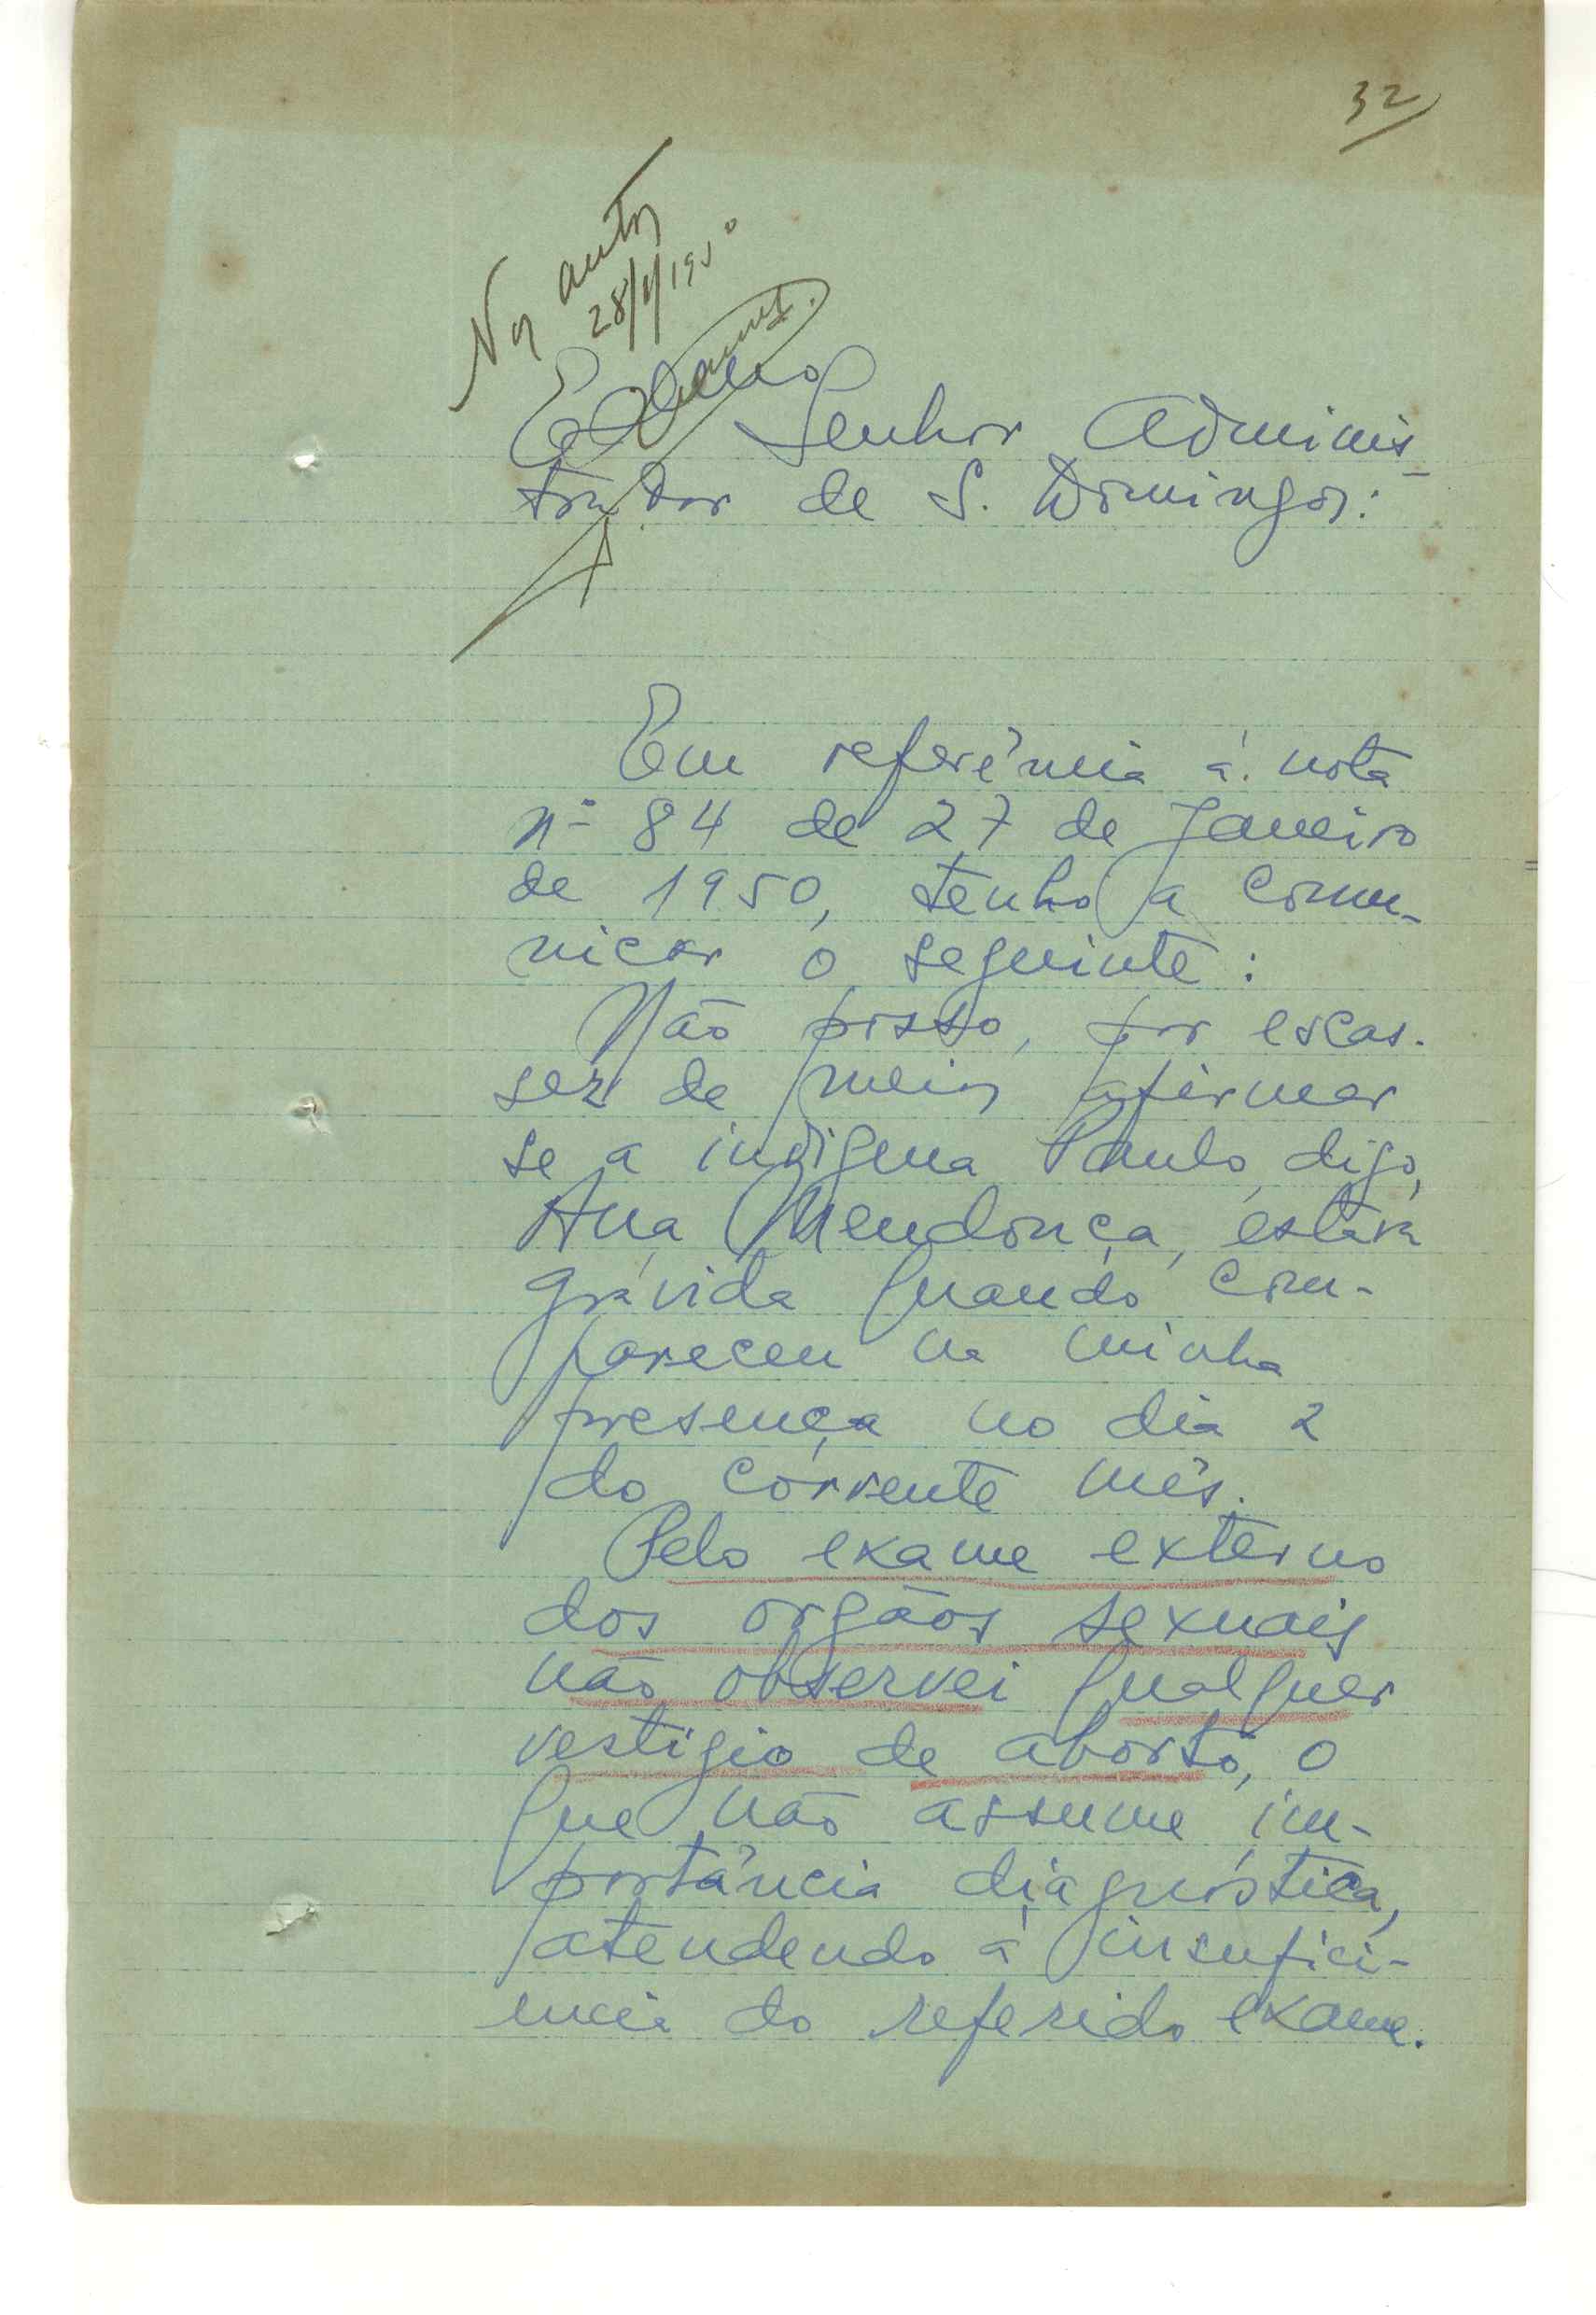 32
Nos autos
28/1/1950
Senhor Adminis-
trador de S. Domingos:
Em referência á nota
nº 84 de 27 de Janeiro
de 1950, tenho a comu-
nicar o seguinte:
Não posso, por escas-
sez de meios afirmar
se a indígena Paulo, digo,
Ana Mendonça, estava
grávida quando com-
pareceu na minha
presença no dia 2
do corrente mês.
Pelo exame externo
dos orgãos sexuais
não observei qualquer
vestigio de aborto, o
que não assume im-
portância diagnóstica,
atendendo á insufici-
encia do referido exame.